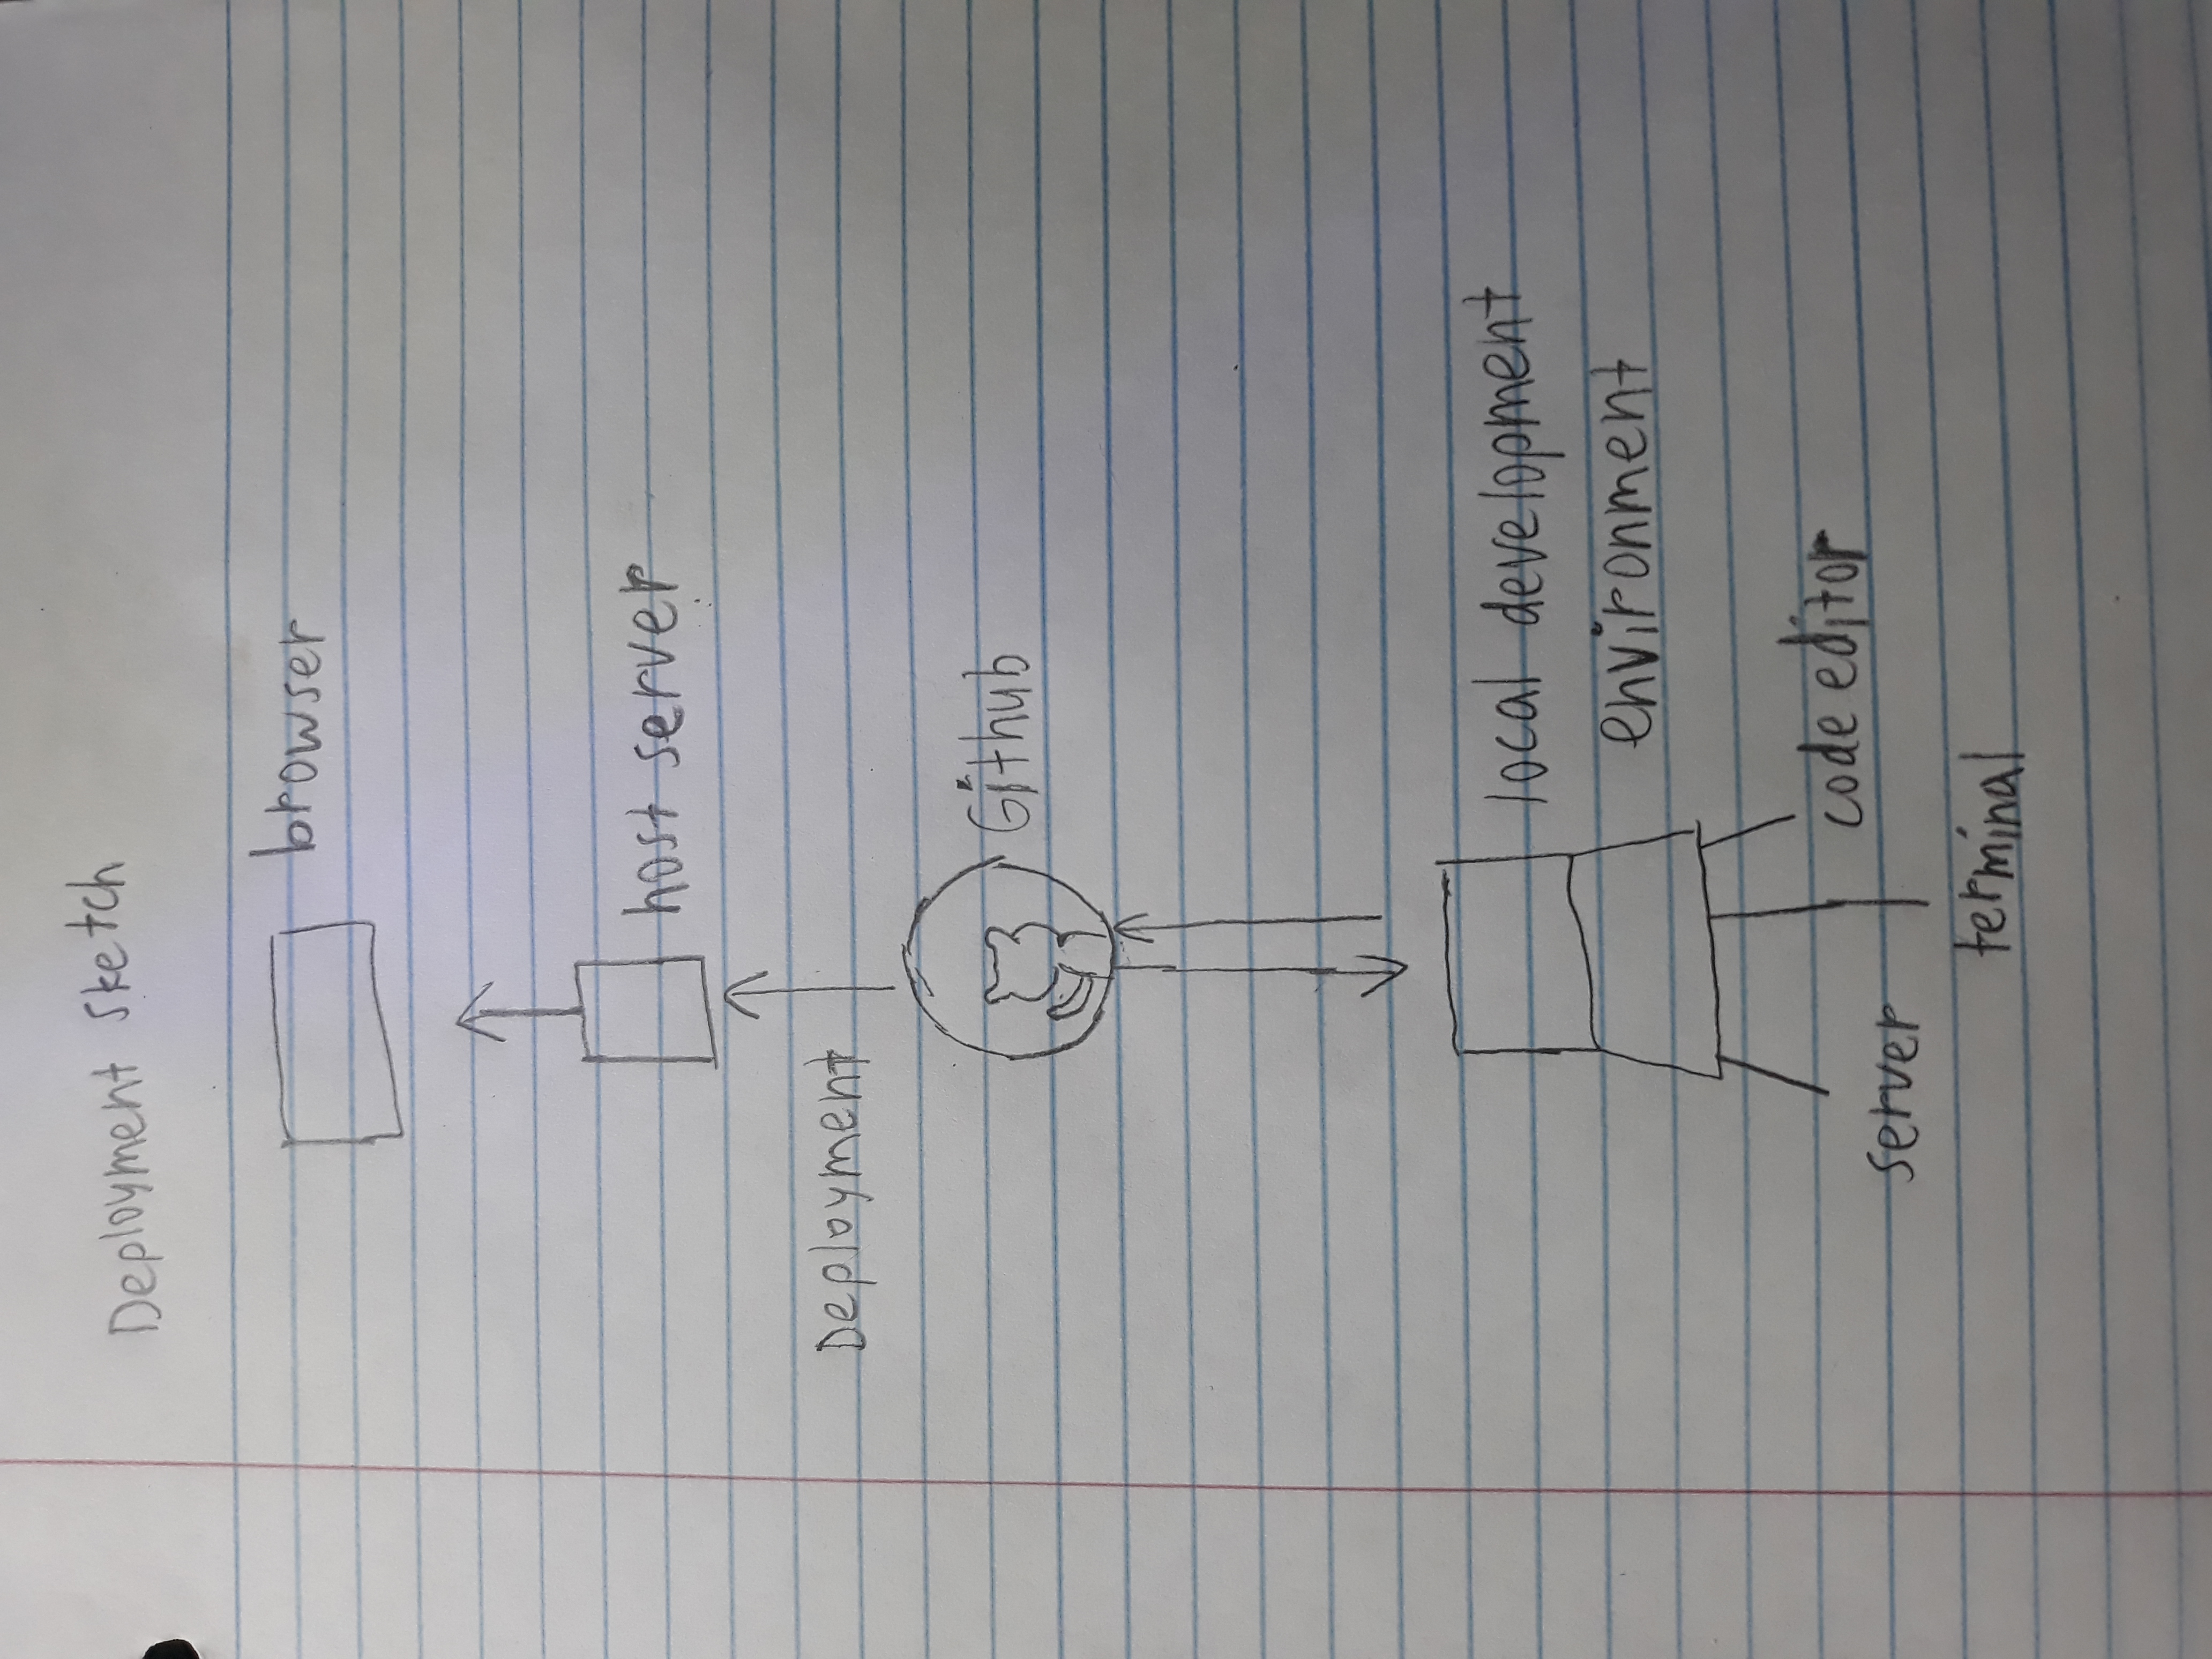 Deployment sketch
browser
host server
Deployment
Github
local development
environment
code editor
server
terminal